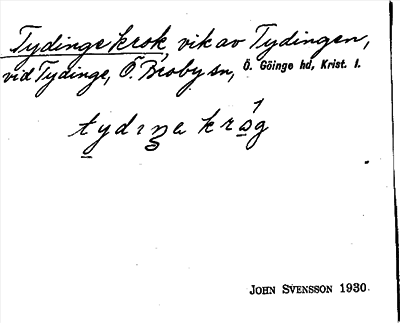 Tydinge krok, vik av Tydingen,
vid Tydinge, Ö. Broby sn, Ö. Göinge hd, Krist. l.
tydıŋe kråg
JOHN SVENSSON 1930.